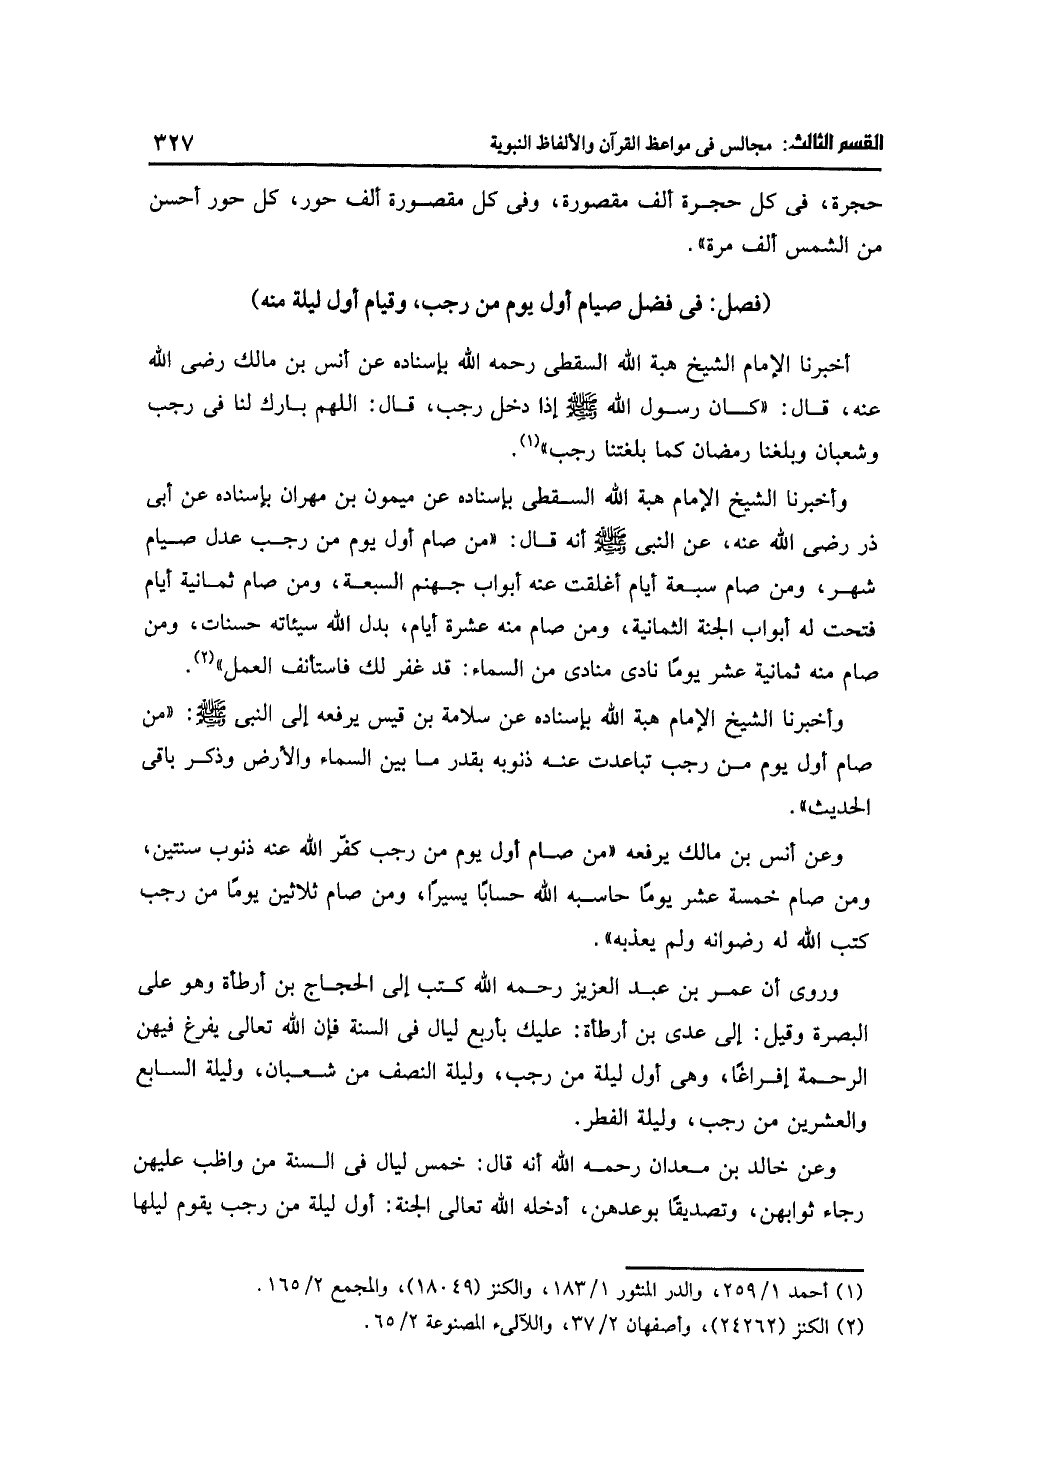 القسم الثالث: مجالس فى مواعظ القرآن والألفاظ النبوية ٣٢٧
حجرة، فى كل حجرة ألف مقصورة، وفى كل مقصورة ألف حور، كل حور أحسن
من الشمس ألف مرة».
(فصل: فى فضل صيام أول يوم من رجب، وقيام أول ليلة منه)
أخبرنا الإمام الشيخ هبة الله السقطى رحمه الله بإسناده عن أنس بن مالك رضى الله
عنه، قال: «كان رسول الله ﷺ إذا دخل رجب، قال: اللهم بارك لنا فى رجب
وشعبان وبلغنا رمضان كما بلغتنا رجب»(١).
وأخبرنا الشيخ الإمام هبة الله السقطى بإسناده عن ميمون بن مهران بإسناده عن أبى
ذر رضى الله عنه، عن النبى ﷺ أنه قال: «من صام أول يوم من رجب عدل صيام
شهر، ومن صام سبعة أيام أغلقت عنه أبواب جهنم السبعة، ومن صام ثمانية أيام
فتحت له أبواب الجنة الثمانية، ومن صام منه عشرة أيام، بدل الله سيئاته حسنات، ومن
صام منه ثمانية عشر يومًا نادى منادى من السماء: قد غفر لك فاستأنف العمل»(٢).
وأخبرنا الشيخ الإمام هبة الله بإسناده عن سلامة بن قيس يرفعه إلى النبى ﷺ: «من
صام أول يوم من رجب تباعدت عنه ذنوبه بقدر ما بين السماء والأرض وذكر باقى
الحديث».
وعن أنس بن مالك يرفعه «من صام أول يوم من رجب كفّر الله عنه ذنوب سنتين،
ومن صام خمسة عشر يومًا حاسبه الله حسابًا يسيرًا، ومن صام ثلاثين يومًا من رجب
كتب الله له رضوانه ولم يعذبه».
وروى أن عمر بن عبد العزيز رحمه الله كتب إلى الحجاج بن أرطأة وهو على
البصرة وقيل: إلى عدى بن أرطأة: عليك بأربع ليال فى السنة فإن الله تعالى يفرغ فيهن
الرحمة إفراغًا، وهى أول ليلة من رجب، وليلة النصف من شعبان، وليلة السابع
والعشرين من رجب، وليلة الفطر.
وعن خالد بن معدان رحمه الله أنه قال: خمس ليال فى السنة من واظب عليهن
رجاء ثوابهن، وتصديقًا بوعدهن، أدخله الله تعالى الجنة: أول ليلة من رجب يقوم ليلها
(١) أحمد ١/ ٢٥٩، والدر المنثور ١/ ١٨٣، والكنز (١٨٠٤٩)، والمجمع ٢/ ١٦٥.
(٢) الكنز (٢٤٢٦٢)، وأصفهان ٢/ ٣٧، واللآلىء المصنوعة ٢/ ٦٥.